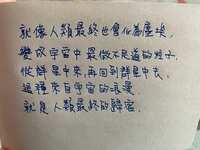 就像人類最終也會化為塵埃,
變成宇宙中最微不足道的粒子.
從群星中來,再回到群星中去.
這種來自宇宙的浪漫
就是人類最終的歸宿.